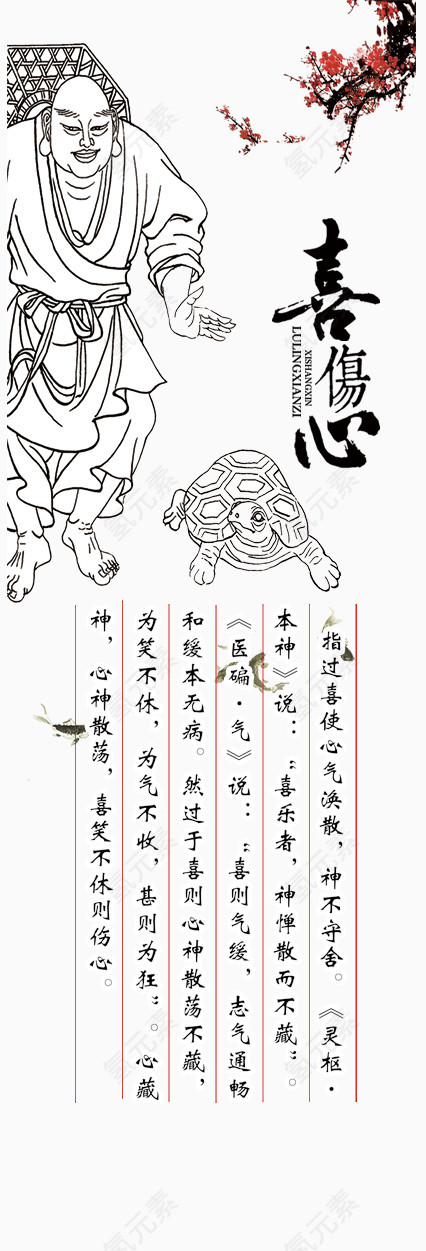 喜傷心
XISHANGXIN
LULINGXIANZI
指过喜使心气涣散，神不守舍。《灵枢·
本神》说：“喜乐者，神惮散而不藏”。
《医碥·气》说：“喜则气缓，志气通畅
和缓本无病。然过于喜则心神散荡不藏，
为笑不休，为气不收，甚则为狂”。心藏
神，心神散荡，喜笑不休则伤心。
氢元素